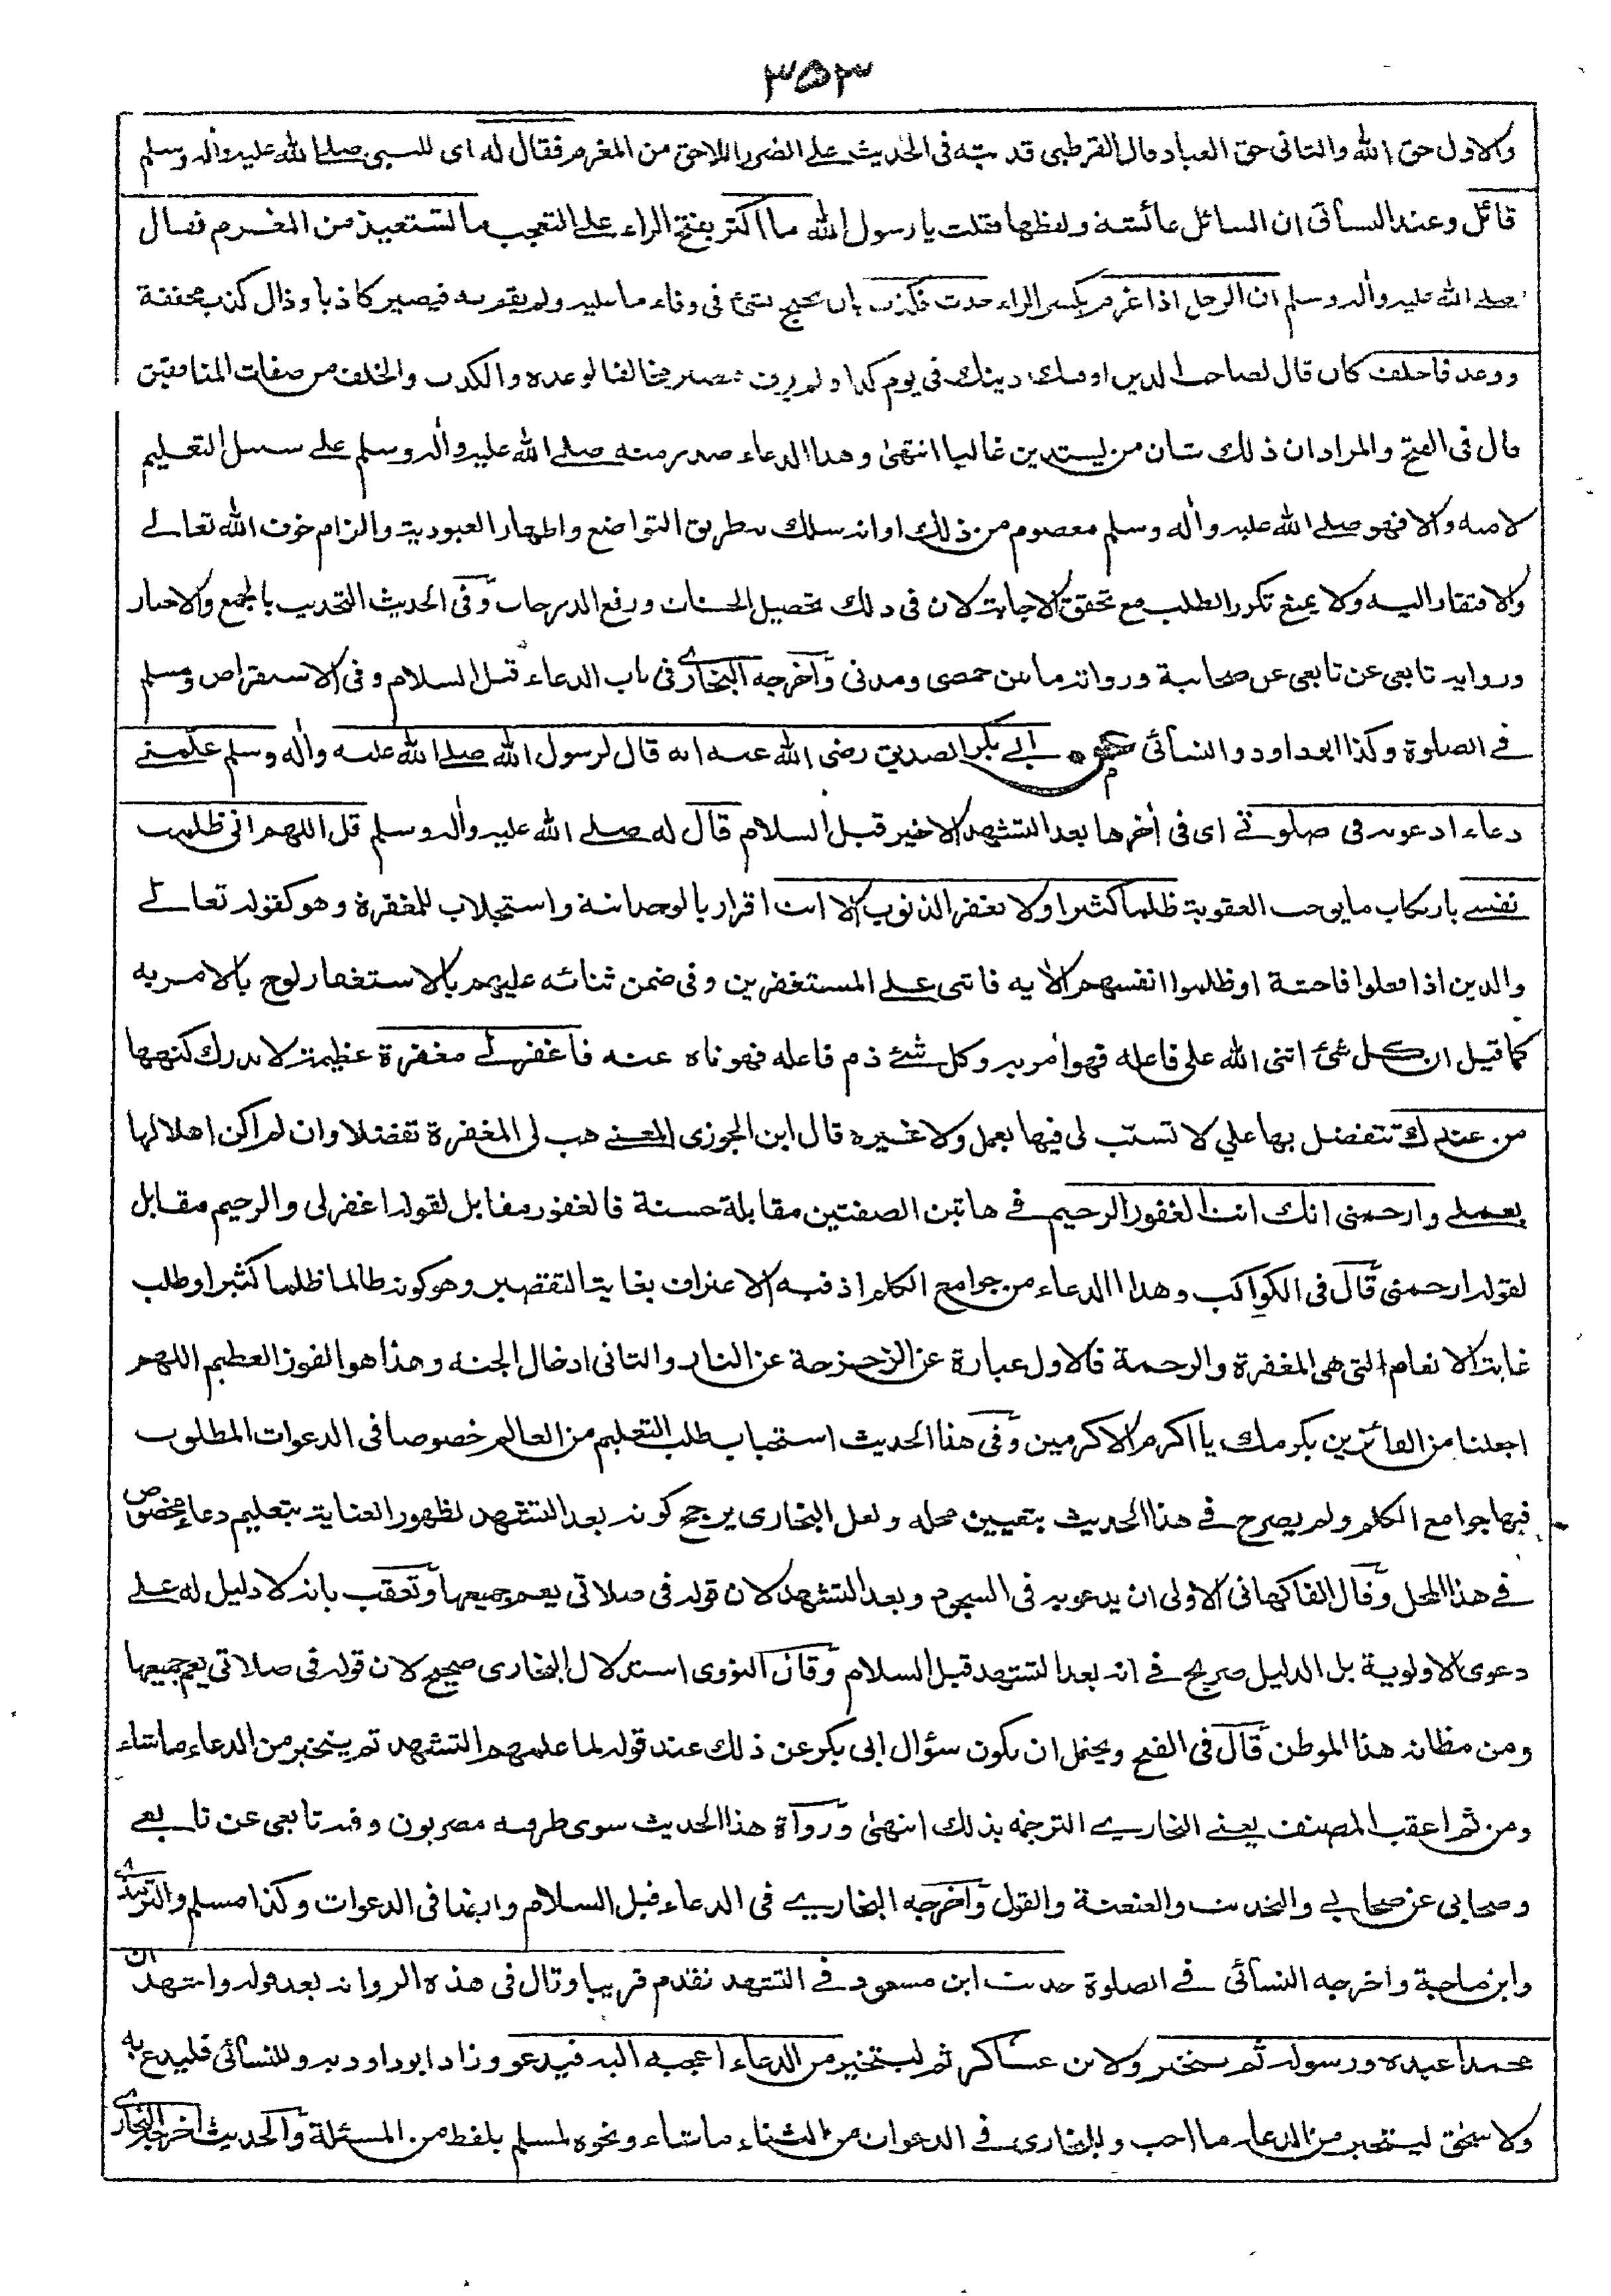 ٣٥٣
والاول حق الله والثانى حق العباد قال القرطبى قد نبه فى الحديث على الضرر اللاحق من المغرم فقال له اى للنبى صلے الله عليه واٰله وسلم
قائل وعند النسائى ان السائل عائشة ولفظها فقلت يا رسول الله ما اكثر بفتح الراء على التعجب ما تستعيذ من المغرم فقال
صلے الله عليه واٰله وسلم ان الرجل اذا غرم بكسر الراء حدث فكذب بان يحتج بشئ فى وفاء ما عليه ولم يقم به فيصير كاذبا وذال كذب مخففة
ووعد فاخلف كان قال لصاحب الدين اوفيك دينك فى يوم كذا ولم يوف فصار مخالفا لوعده والكذب والخلف من صفات المنافقين
قال فى الفتح والمراد ان ذلك شان من يستدين غالبا انتهىٰ وهذا الدعاء صدر منه صلے الله عليه واٰله وسلم علے سبيل التعليم
لامته والا فهو صلے الله عليه واٰله وسلم معصوم من ذلك او انه سلك به طريق التواضع واظهار العبودية والزام خوف الله تعالے
والافتقار اليه ولا يمنع تكرر الطلب مع تحقق الاجابة لان فى ذلك تحصيل الحسنات ورفع الدرجات وفى الحديث التحديث بالجمع والاخبار
ورواية تابعى عن تابعى عن صحابية ورواته ما بين حمصى ومدنى واخرجه البخارى فى باب الدعاء قبل السلام وفى الاستقراض ومسلم
فے الصلوة وكذا ابو داود والنسائى عن ابے بكر الصديق رضى الله عنه انه قال لرسول الله صلے الله عليه واٰله وسلم علمنے
دعاء ادعو به فى صلوتے اى فى اٰخرها بعد التشهد الاخير قبل السلام قال له صلے الله عليه واٰله وسلم قل اللهم انى ظلمت
نفسے بارتكاب ما يوجب العقوبة ظلما كثيرا ولا يغفر الذنوب الا انت اقرار بالوحدانية واستجلاب للمغفرة وهو كقوله تعالے
والذين اذا فعلوا فاحشة او ظلموا انفسهم الاٰية فاثنى علے المستغفرين وفى ضمن ثنائه عليهم بالاستغفار لوح بالامر به
كما قيل ان كل شئ اثنى الله على فاعله فهو اٰمر به وكل شئے ذم فاعله فهو ناه عنه فاغفر لے مغفرة عظيمة لا يدرك كنهها
من عندك تتفضل بها علي لا تسبب لى فيها بعمل ولا غيره قال ابن الجوزى المعنے هب لى المغفرة تفضلا وان لم اكن اهلا لها
بعملے وارحمنى انك انت الغفور الرحيم فے هاتين الصفتين مقابلة حسنة فالغفور مقابل لقوله اغفر لى والرحيم مقابل
لقوله ارحمنى قال فى الكواكب وهذا الدعاء من جوامع الكلم اذ فيه الاعتراف بغاية التقصير وهو كونه ظالما ظلما كثيرا وطلب
غاية الانعام التى هى المغفرة والرحمة فالاول عبارة عن الزحزحة عن النار والثانى ادخال الجنه وهذا هو الفوز العظيم اللهم
اجعلنا من الفائزين بكرمك يا اكرم الاكرمين وفى هذا الحديث استحباب طلب التعليم من العالم خصوصا فى الدعوات المطلوب
فيها جوامع الكلم ولم يصرح فے هذا الحديث بتعيين محله ولعل البخارى يرجح كونه بعد التشهد لظهور العناية بتعليم دعاء مخصوص
فے هذا المحل وقال الفاكهانى الاولى ان يدعو به فى السجود وبعد التشهد لان قوله فى صلاتى يعم جميعها وتعقب بانه لا دليل له علے
دعوى الاولوية بل الدليل صريح فے انه بعد التشهد قبل السلام وقال النووى استدلال البخارى صحيح لان قوله فى صلاتى يعم جميعها
ومن مظانه هذا الموطن قال فى الفتح ويحتمل ان يكون سؤال ابى بكر عن ذلك عند قوله لما علمهم التشهد ثم يتخير من الدعاء ما شاء
ومن ثم اعقب المصنف يعنے البخارے الترجمه بذلك انتهىٰ ورواة هذا الحديث سوى طرفيه مصريون وفيه تابعى عن تابعے
وصحابى عن صحابے والتحديث والعنعنة والقول واخرجه البخارے فى الدعاء قبل السلام وايضا فى الدعوات وكذا مسلم والترمذى
وابن ماجة واخرجه النسائى فے الصلوة حديث ابن مسعود فے التشهد تقدم قريبا وقال فى هذه الرواية بعد قوله واشهد ان
محمدا عبده ورسوله ثم يتخير ولابن عساكر ثم ليتخير من الدعاء اعجبه اليه فيدعو وزاد ابو داود به وللنسائى فليدع به
ولاسحق ليتخير من الدعاء ما احب وللبخارى فے الدعوات من الثناء ما شاء ونحوه لمسلم بلفظ من المسئلة والحديث اخرجه البخارى